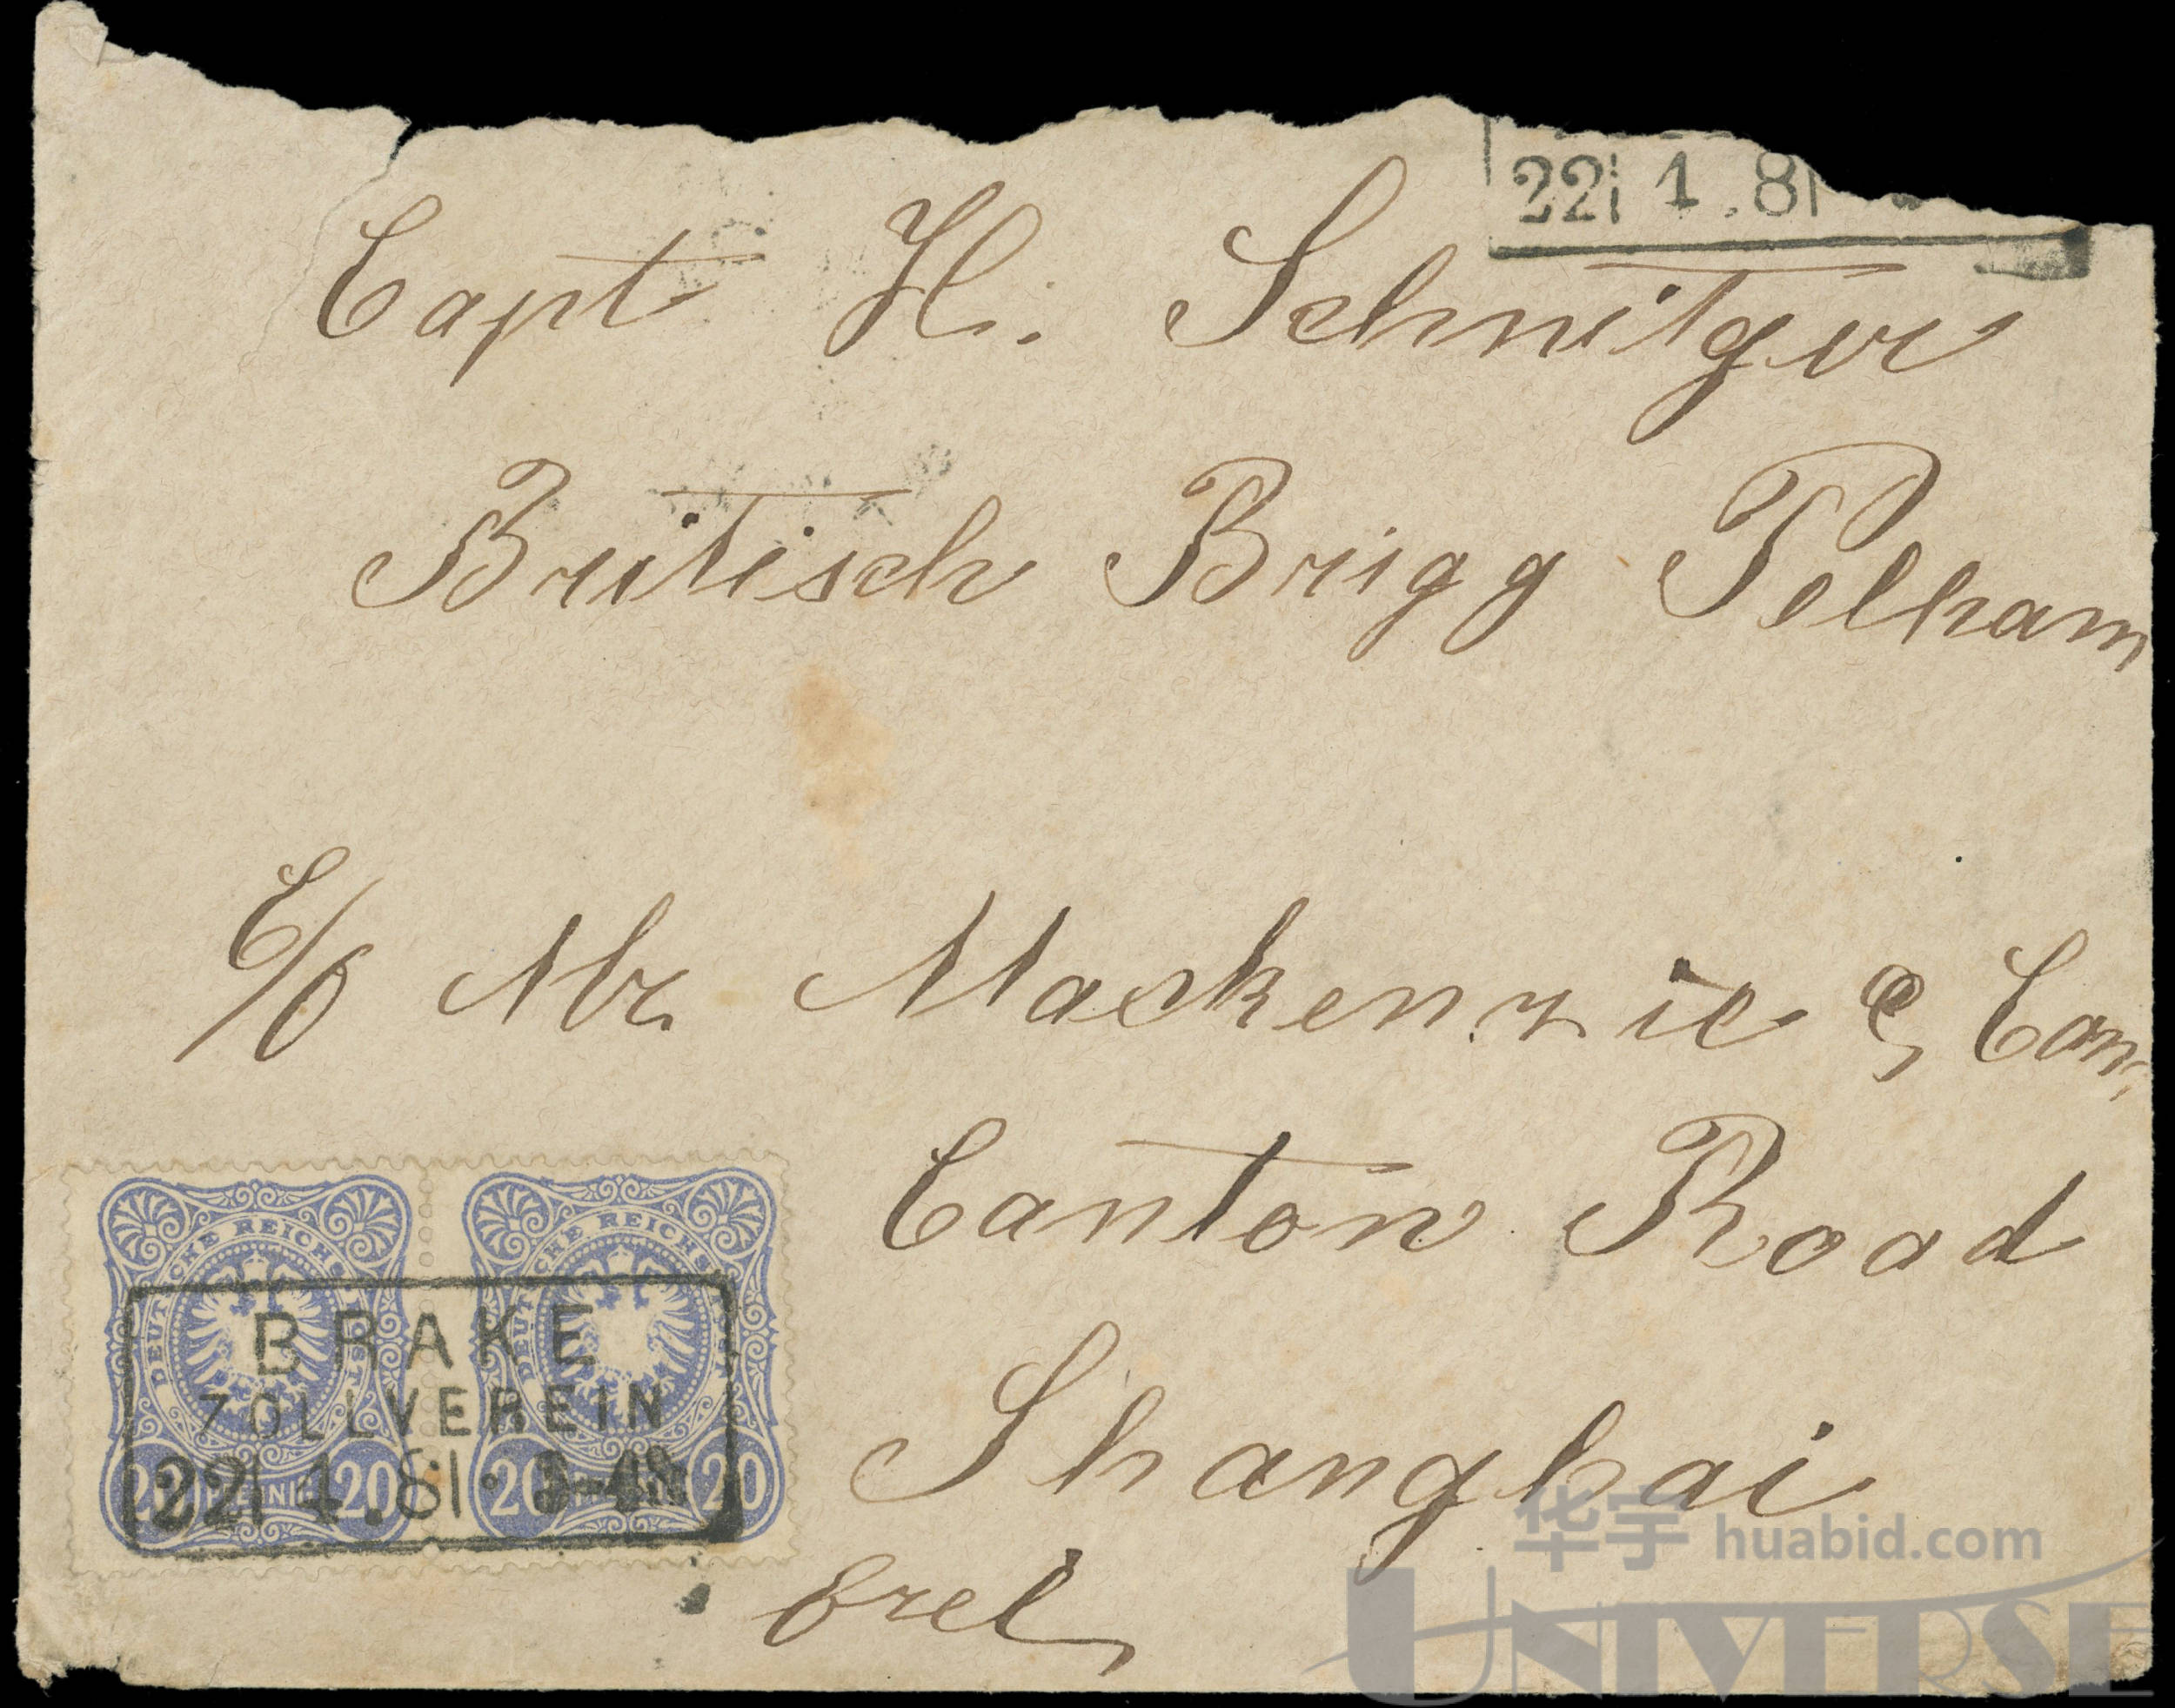 22 1.81
Capt H. Schnitger
Britisch Brigg Pelham
C/o Mr. Mackenzie & Com
Canton Road
Shanghai
DEUTSCHE REICHS-POST DEUTSCHE REICHS-POST
BRAKE
ZOLLVEREIN
22 1.81. 3-4N
20 PFENNIG 20 20 PFENNIG 20
华宇 huabid.com
UNIVERSE